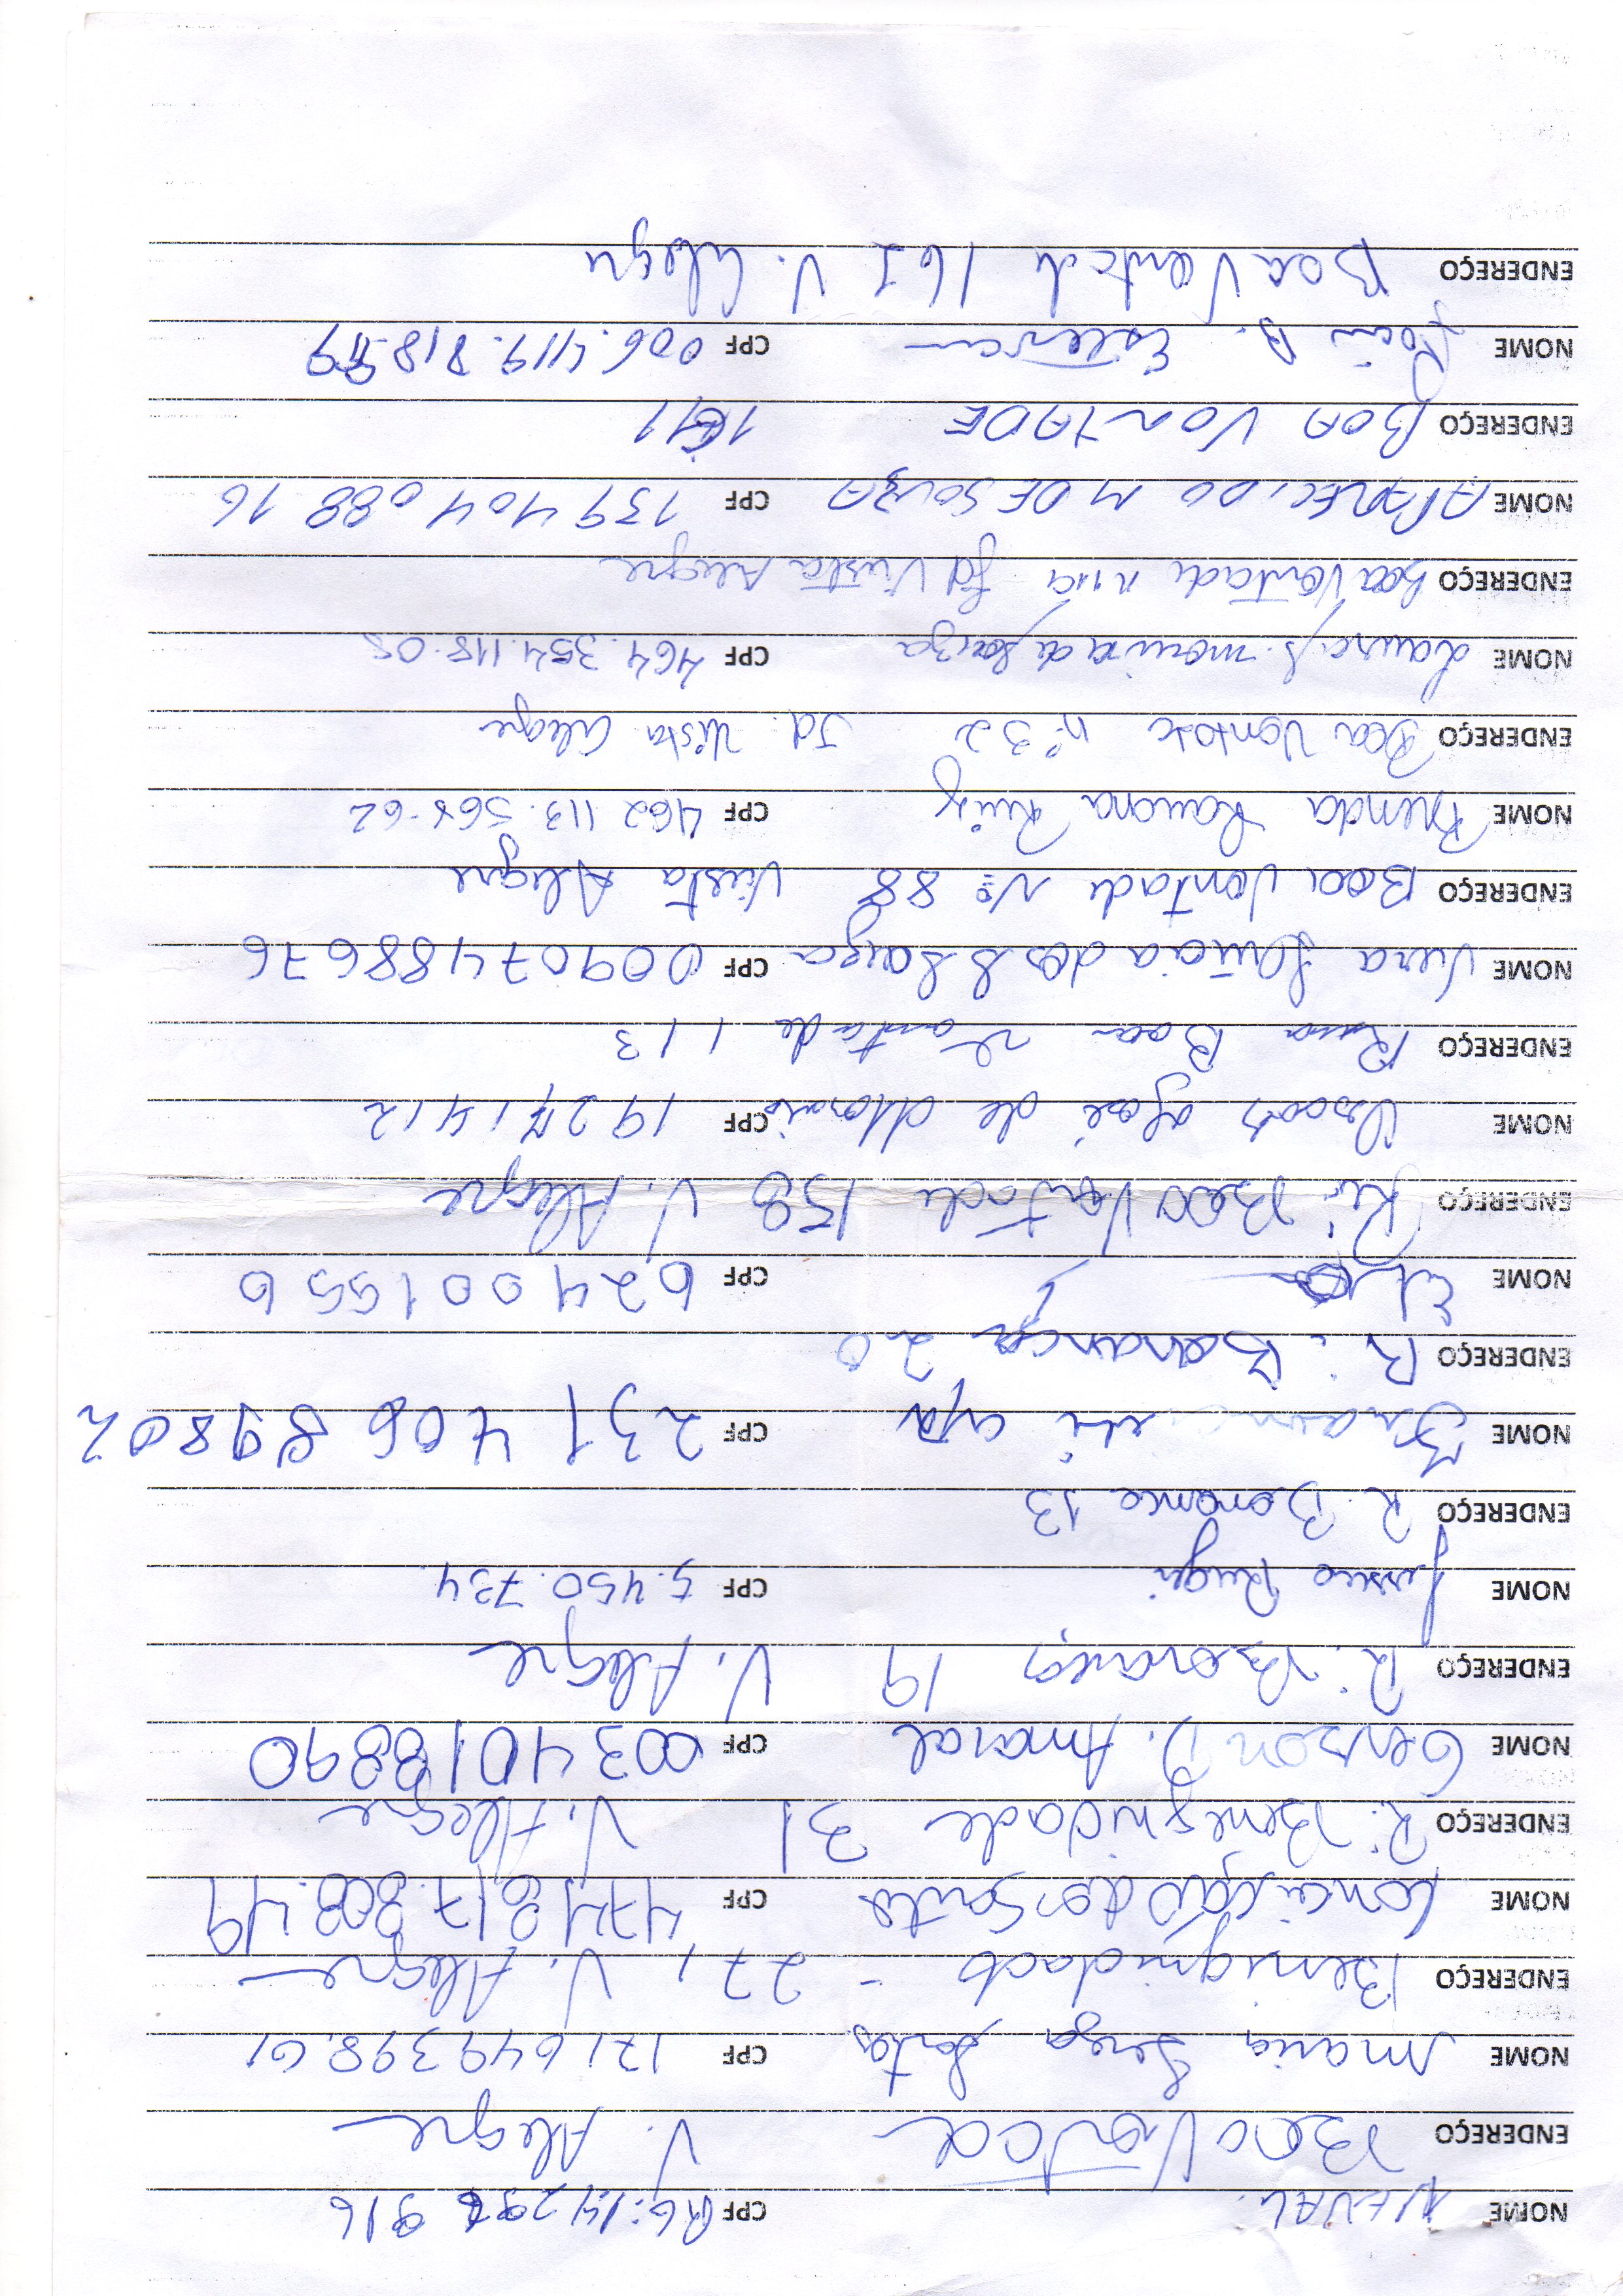 NOME NEVAL. CPF RG: 14 291 916
ENDEREÇO Boa Vontade V. Alegre
NOME Maria Souza Santos CPF 171649398.61
ENDEREÇO Benignidade - 271 V. Alegre
NOME Conceição dos Santos CPF 474.817.808.49
ENDEREÇO R: Benegnidade 31 V. Alegre
NOME Gerson D. Amaral CPF 00340188890
ENDEREÇO R: Bonança, 19 V. Alegre
NOME CPF 5.450.734
ENDEREÇO R. Bonança 13
NOME CPF 231 406 898 02
ENDEREÇO R: Bonança 20
NOME CPF 0240015560
ENDEREÇO R: Boa Vontade 158 V. Alegre
NOME José de Morais CPF 19271412
ENDEREÇO Rua Boa Vontade 113
NOME Vera Lucia dos S Souza CPF 00907488676
ENDEREÇO Boa Vontade Nº 88 Vista Alegre
NOME Brenda Ramona Ruiz CPF 462 113.568-62
ENDEREÇO Boa Vontade nº 32 Jd. Vista Alegre
NOME Laura S. moreira de souza CPF 464.354.118.08
ENDEREÇO Boa Vontade Jd Vista Alegre
NOME APARECIDO M DE SOUZA CPF 139 404 088 16
ENDEREÇO BOA VONTADE
NOME CPF 006.419.818.
ENDEREÇO Boa Vontade 161 V. Alegre